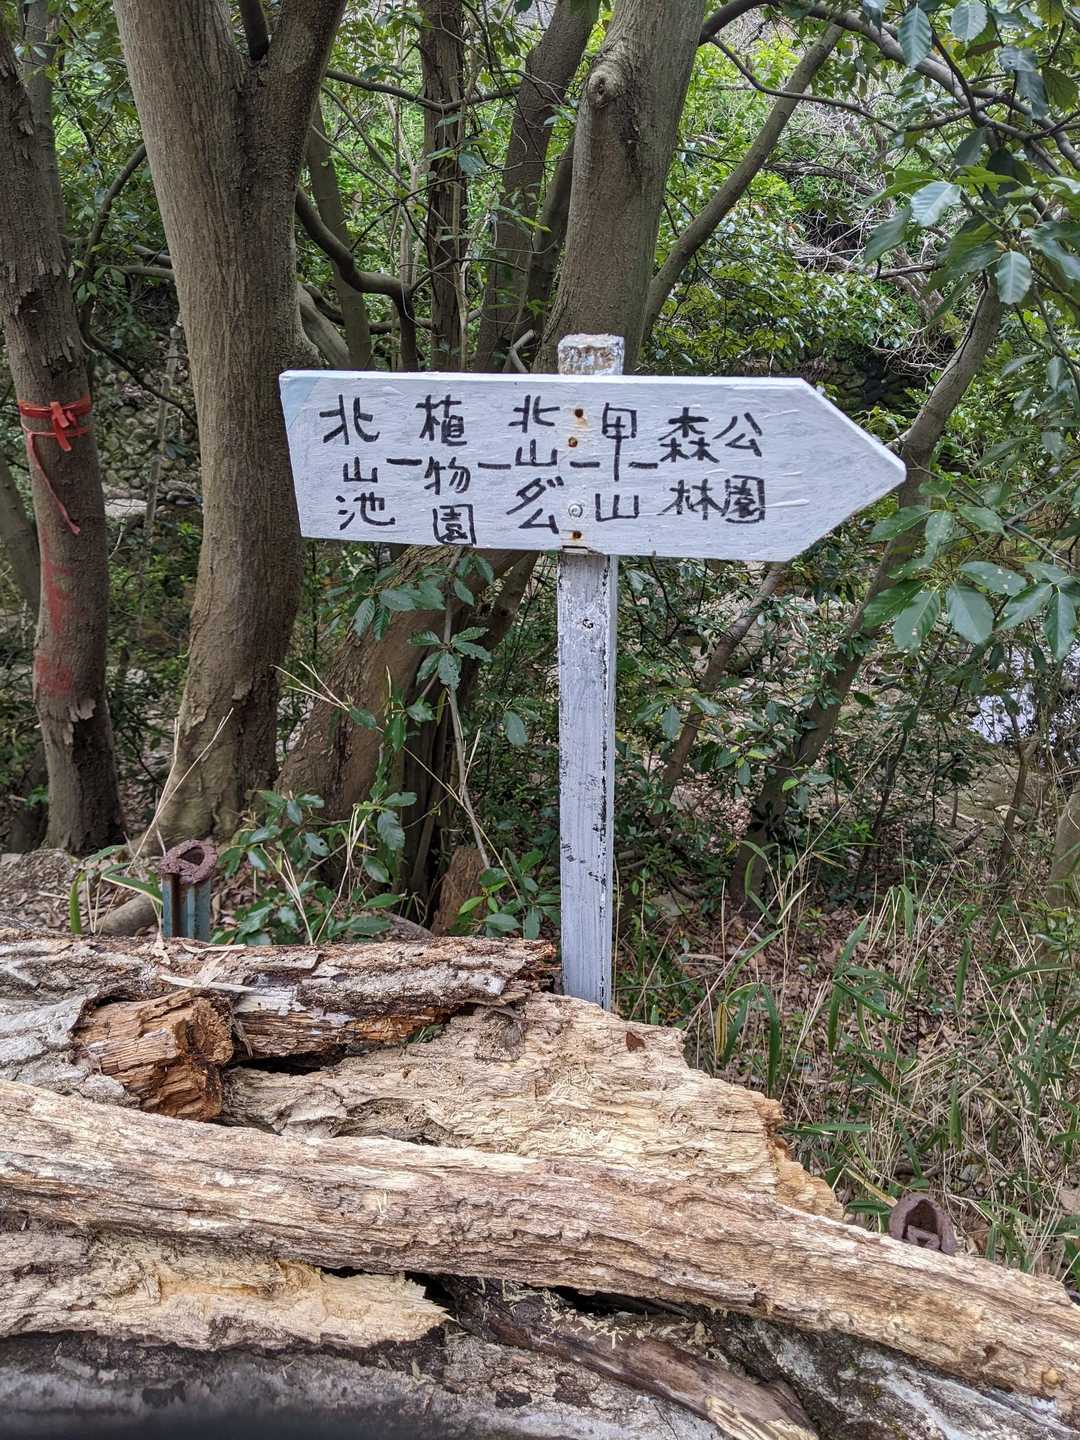 北山池ー植物園ー北山ダムー甲山ー森林公園